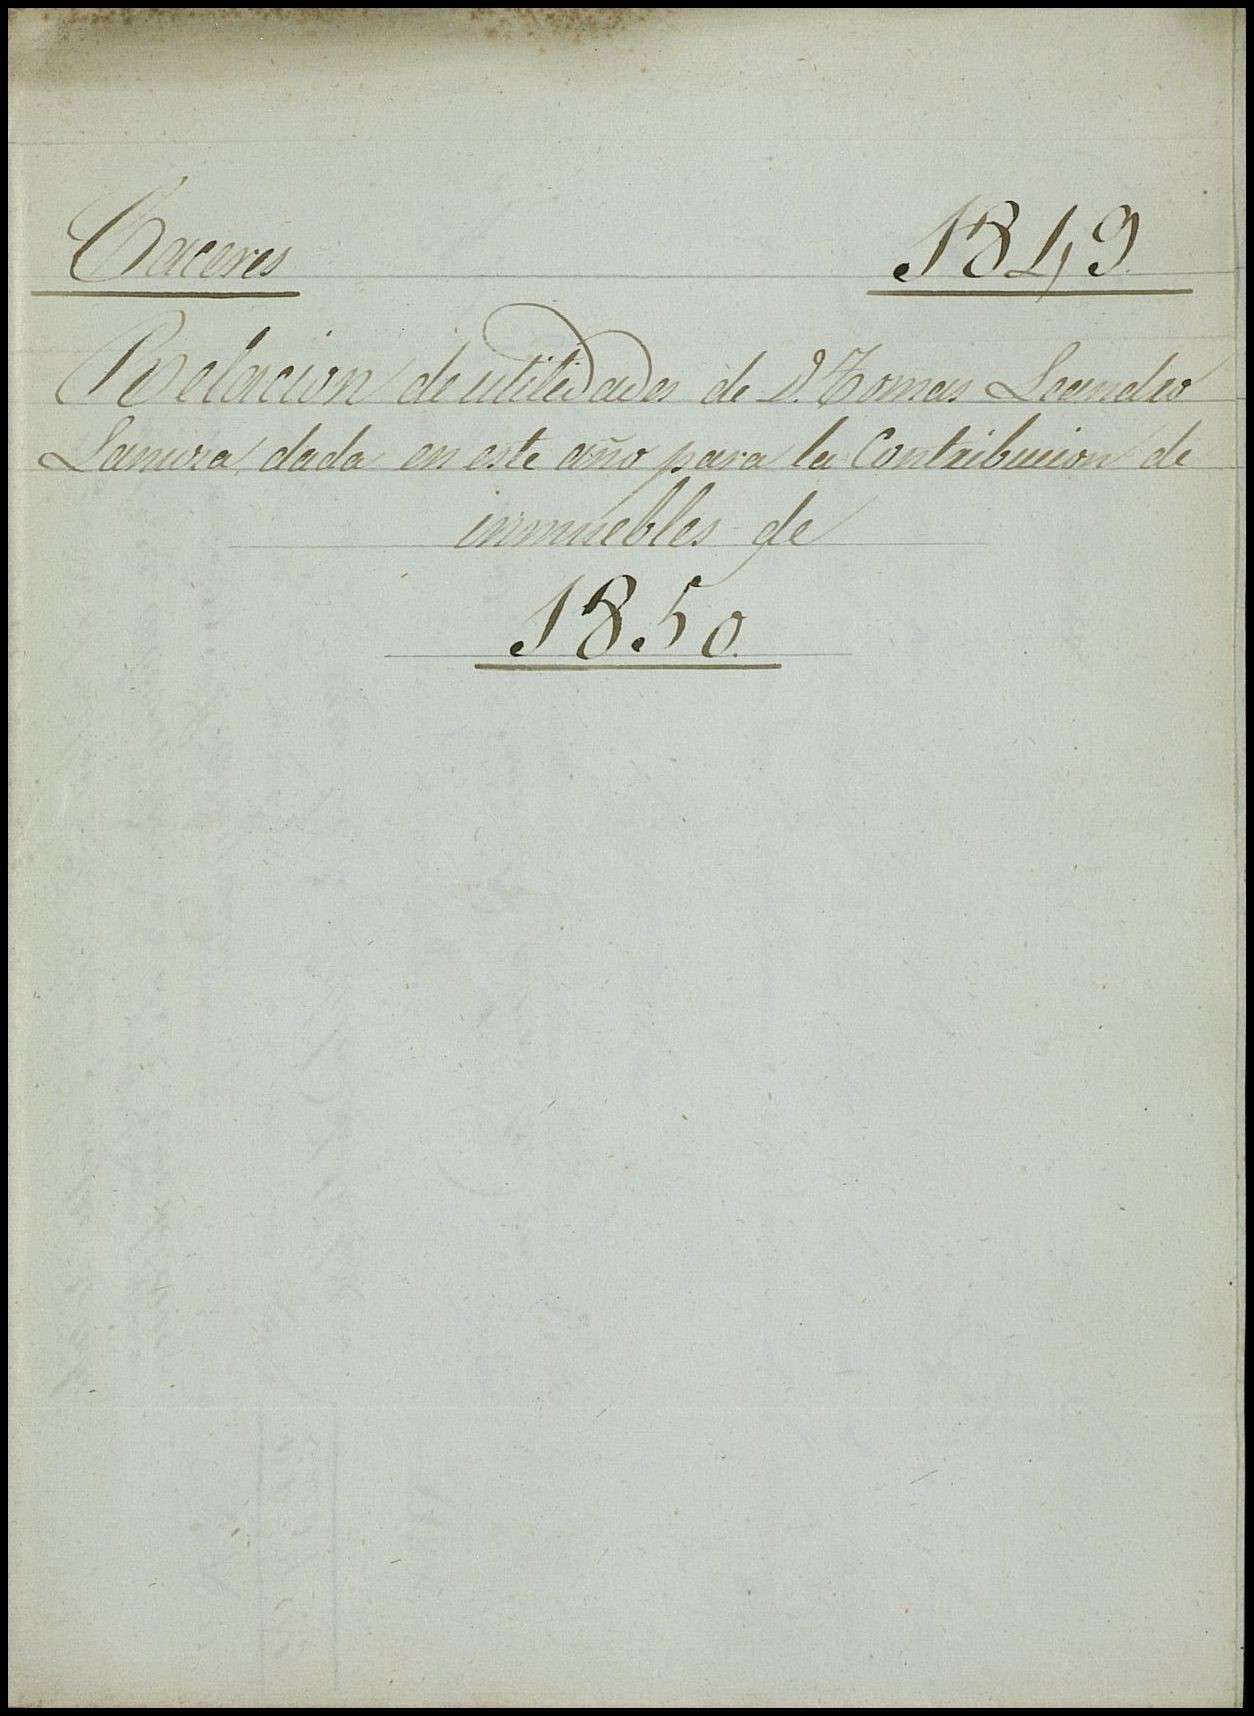 Caceres 1849.
Relacion de utilidades de D. Tomas Leandro
dada en este año para la Contribucion de
inmuebles de
1850.